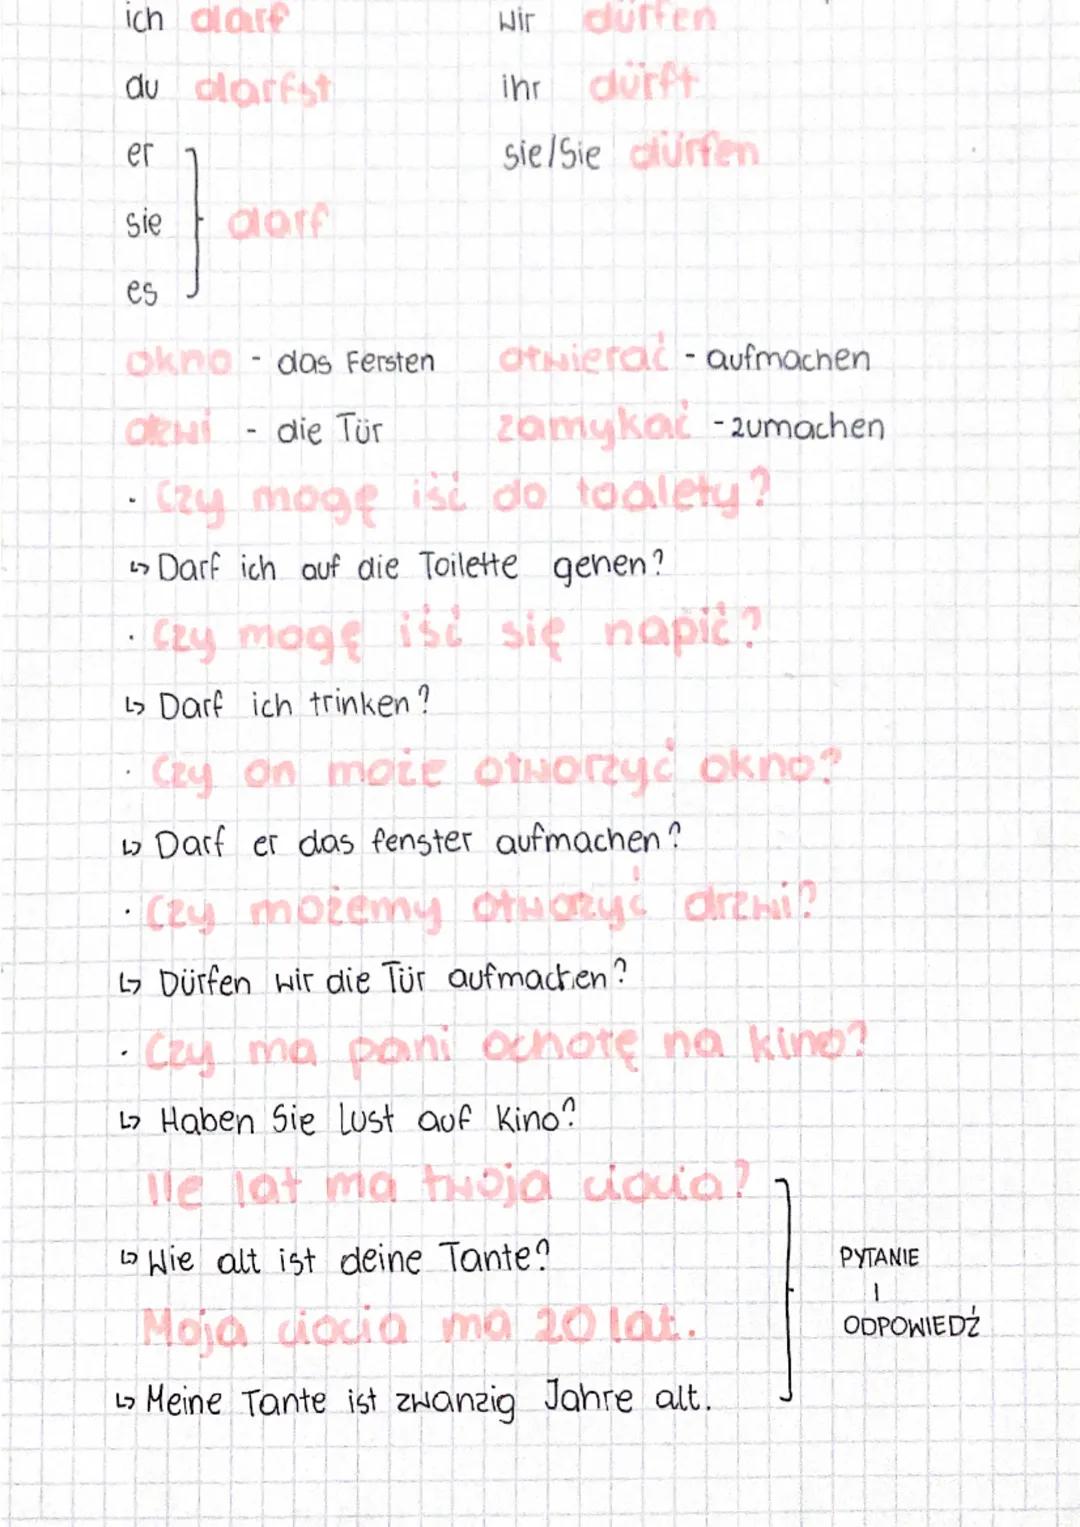 ich darf wir dürfen
du darfst ihr dürft
er sie/Sie dürfen
sie darf
es
okno - das Fersten otwierać - aufmachen
drzwi - die Tür zamykać - zumachen
· Czy mogę iść do toalety?
↳ Darf ich auf die Toilette genen?
· Czy mogę iść się napić?
↳ Darf ich trinken?
· Czy on może otworzyć okno?
↳ Darf er das fenster aufmachen?
· Czy możemy otworzyć drzwi?
↳ Dürfen wir die Tür aufmachen?
· Czy ma pani ochotę na kino?
↳ Haben Sie Lust auf Kino?
Ile lat ma twoja ciocia?
↳ Wie alt ist deine Tante?
PYTANIE
I
ODPOWIEDŹ
Moja ciocia ma 20 lat.
↳ Meine Tante ist zwanzig Jahre alt.